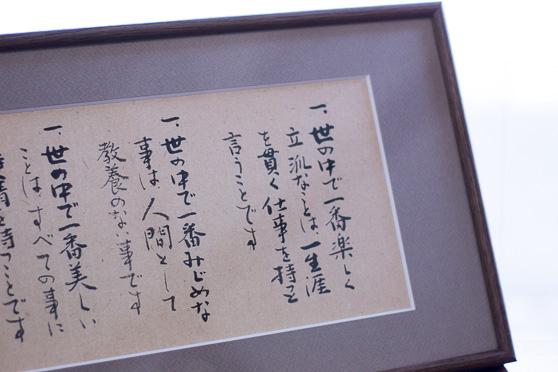 一、世の中で一番楽しく
立派なことは一生涯
を貫く仕事を持つと
言うことです
一、世の中で一番みじめな
事は人間として
教養のない事です
一、世の中で一番美しい
ことはすべての事に
愛情を持つことです